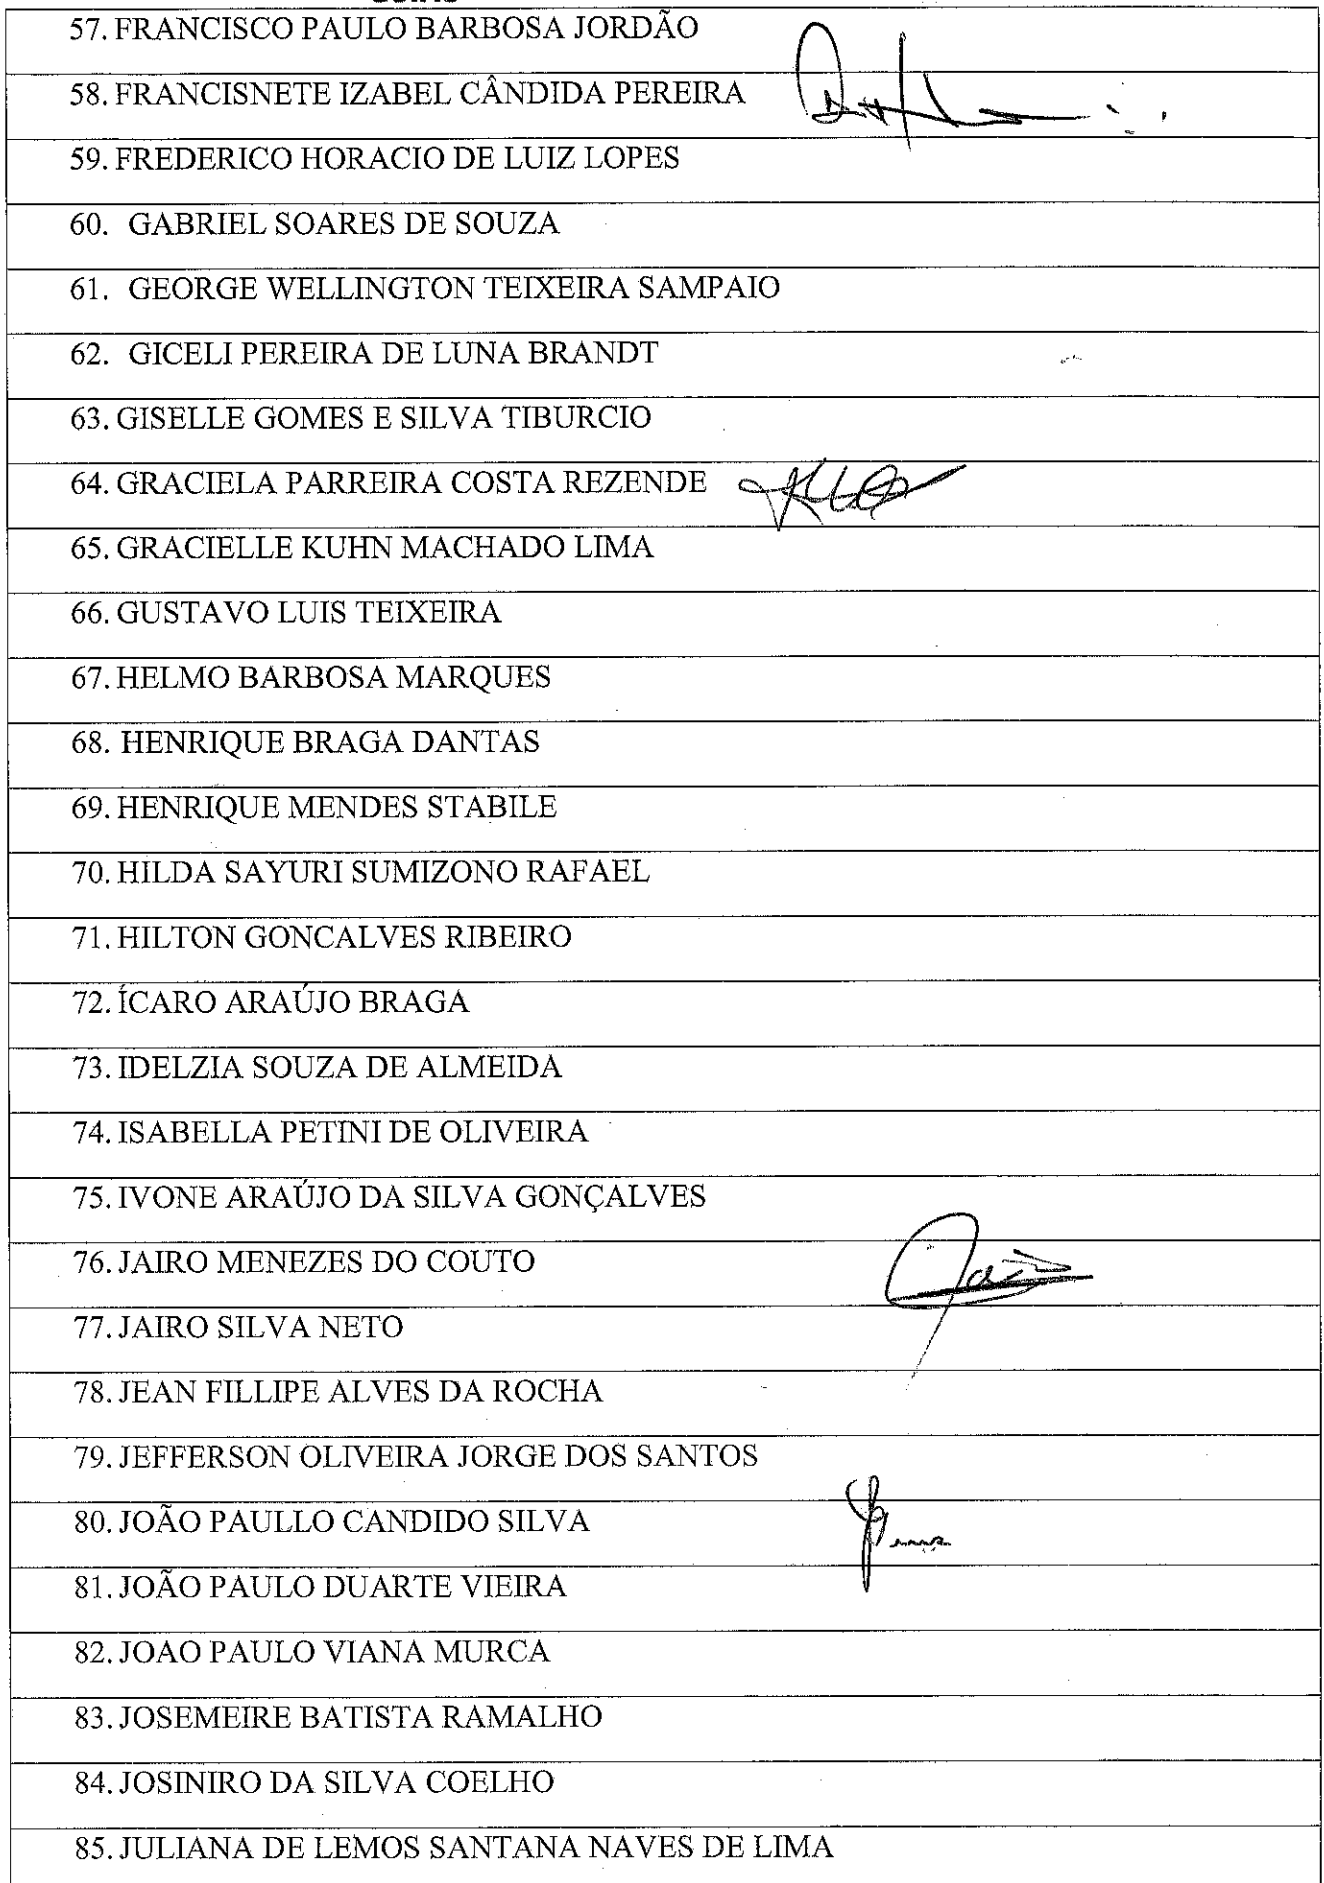 57. FRANCISCO PAULO BARBOSA JORDÃO
58. FRANCISNETE IZABEL CÂNDIDA PEREIRA
59. FREDERICO HORACIO DE LUIZ LOPES
60. GABRIEL SOARES DE SOUZA
61. GEORGE WELLINGTON TEIXEIRA SAMPAIO
62. GICELI PEREIRA DE LUNA BRANDT
63. GISELLE GOMES E SILVA TIBURCIO
64. GRACIELA PARREIRA COSTA REZENDE
65. GRACIELLE KUHN MACHADO LIMA
66. GUSTAVO LUIS TEIXEIRA
67. HELMO BARBOSA MARQUES
68. HENRIQUE BRAGA DANTAS
69. HENRIQUE MENDES STABILE
70. HILDA SAYURI SUMIZONO RAFAEL
71. HILTON GONCALVES RIBEIRO
72. ÍCARO ARAÚJO BRAGA
73. IDELZIA SOUZA DE ALMEIDA
74. ISABELLA PETINI DE OLIVEIRA
75. IVONE ARAÚJO DA SILVA GONÇALVES
76. JAIRO MENEZES DO COUTO
77. JAIRO SILVA NETO
78. JEAN FILLIPE ALVES DA ROCHA
79. JEFFERSON OLIVEIRA JORGE DOS SANTOS
80. JOÃO PAULLO CANDIDO SILVA
81. JOÃO PAULO DUARTE VIEIRA
82. JOAO PAULO VIANA MURCA
83. JOSEMEIRE BATISTA RAMALHO
84. JOSINIRO DA SILVA COELHO
85. JULIANA DE LEMOS SANTANA NAVES DE LIMA